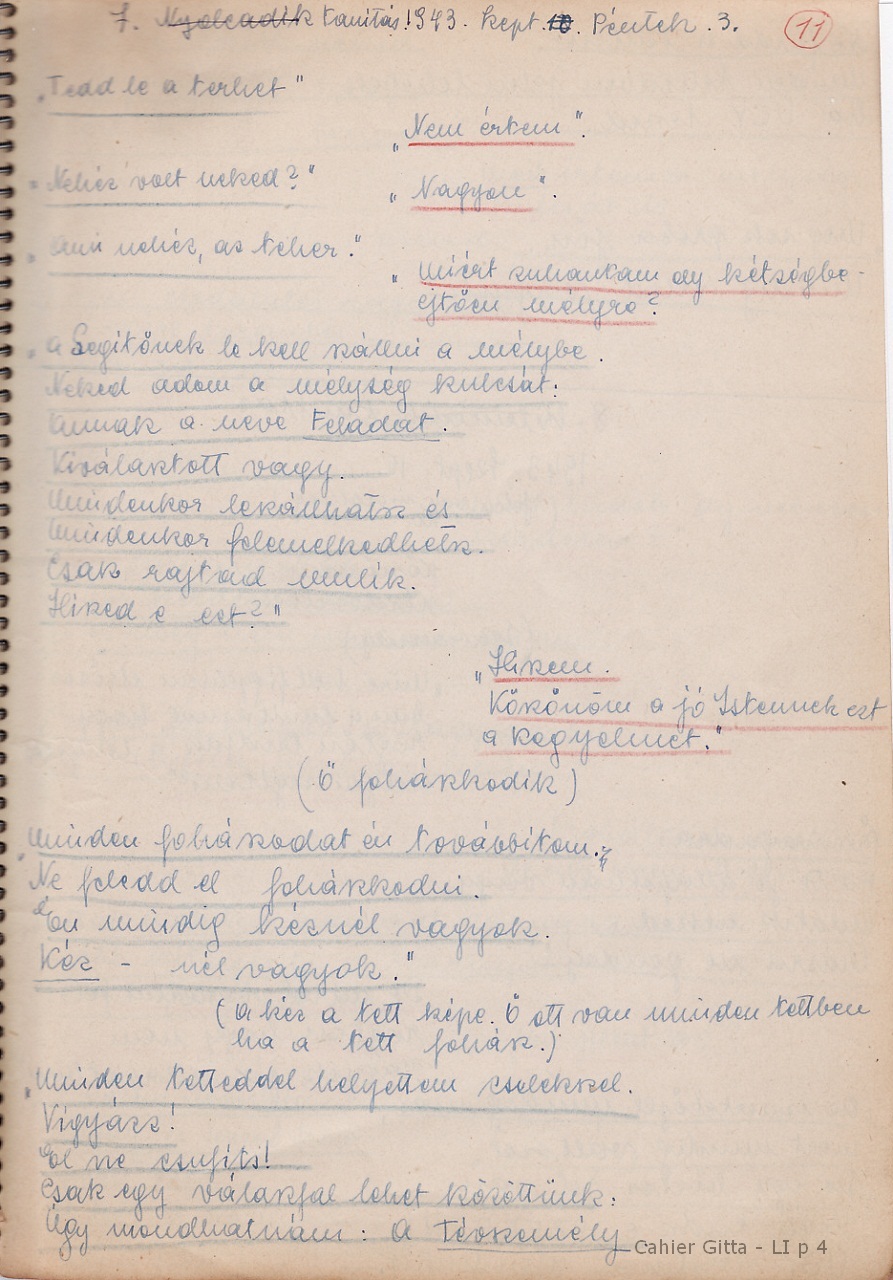 7. Nyolcadik tanitás! 1943. Szept. 10. Péntek. 3.
11
„Tedd le a terhet"
„Nem értem".
„Nehéz volt neked?"
„Nagyon".
„Ami nehéz, az teher."
„Miért zuhantam oly kétségbe-
ejtően mélyre?
„A Segitőnek le kell szállni a mélybe.
Neked adom a mélység kulcsát:
Annak a neve Feladat.
Kiválasztott vagy.
Mindenkor leszállhatsz és
Mindenkor felemelkedhetsz.
Csak rajtad mulik.
Hiszed e ezt?"
„Hiszem.
Köszönöm a jó Istennek ezt
a kegyelmet."
(Ő fohászkodik)
„Minden fohászodat én továbbitom.
Ne feledd el fohászkodni.
Én mindig kéznél vagyok.
Kéz - nél vagyok."
(A kéz a tett képe. Ő ott van minden tettben
ha a tett fohász.)
„Minden tetteddel helyettem cselekszel.
Vigyázz!
El ne csufits!
Csak egy válaszfal lehet közöttünk:
Úgy mondhatnám: A Tévszemély
Cahier Gitta - LI p 4